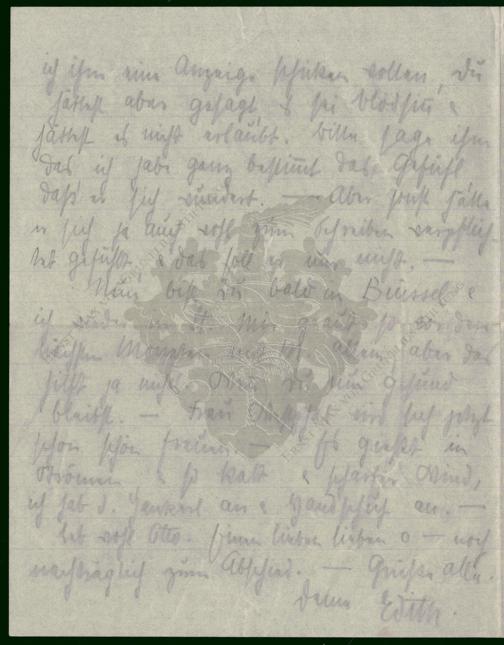 ich ihm eine Anzeige schicken wollen, Du
hättest aber gesagt es sei Blödsinn &
hättest es nicht erlaubt. Bitte sage ihm
das ich habe ganz bestimmt das Gefühl
daß er sich wundert. — Aber sonst hätte
er sich ja auch wohl zum Schreiben verpflich
tet gefühlt, & das soll er nur nicht. —
Nun bist Du bald in Brüssel &
ich wieder in St. Mir graut so vor den
nächsten Monaten mit allem, aber das
hilft ja nicht. Wenn Du nur gesund
bleibst. — Frau wird sich jetzt
schon schön freuen. — Es gießt in
Strömen & so kalt & scharfer Wind,
ich hab d. Jankerl an & Handschuh an. —
Leb wohl Otto. lieben lieben o — noch
nachträglich zum Abschied. — Grüße alle.
Deine Edith.